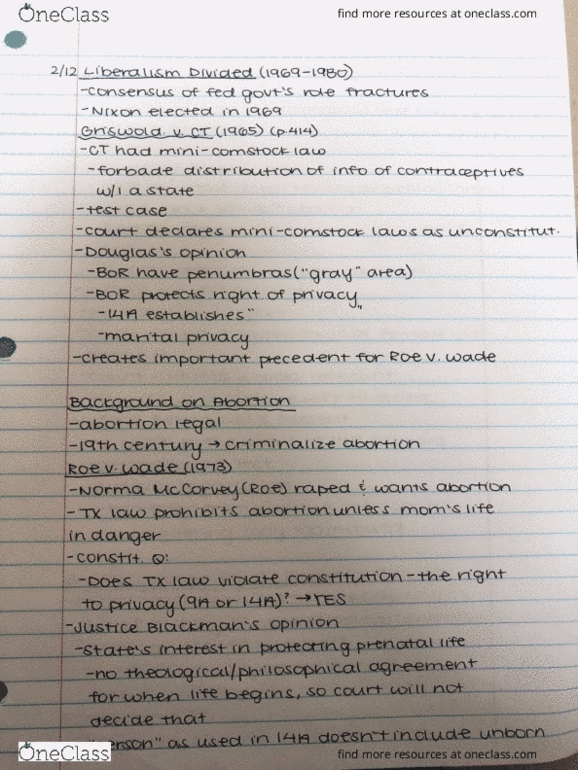 OneClass
find more resources at oneclass.com
2/12 Liberalism Divided (1969-1980)
-consensus of fed govt's role fractures
-Nixon elected in 1969
Griswold v. CT (1965) (p.414)
-CT had mini-comstock law
-forbade distribution of info of contraceptives
w/i a state
-test case
-court declares mini-comstock laws as unconstitut.
-Douglas's opinion
-BoR have penumbras ("gray" area)
-BOR protects right of privacy
-14A establishes"
-marital privacy
-creates important precedent for Roe v. Wade
Background on Abortion
-abortion legal
-19th century → criminalize abortion
Roe v. Wade (1973)
-Norma McCorvey (Roe) raped & wants abortion
-TX law prohibits abortion unless mom's life
in danger
-constit. Q:
-Does TX law violate constitution - the right
to privacy (9A or 14A)? → YES
-Justice Blackman's opinion
-state's interest in protecting prenatal life
-no theological/philosophical agreement
for when life begins, so court will not
decide that
erson" as used in 14A doesn't include unborn
OneClass
find more resources at oneclass.com